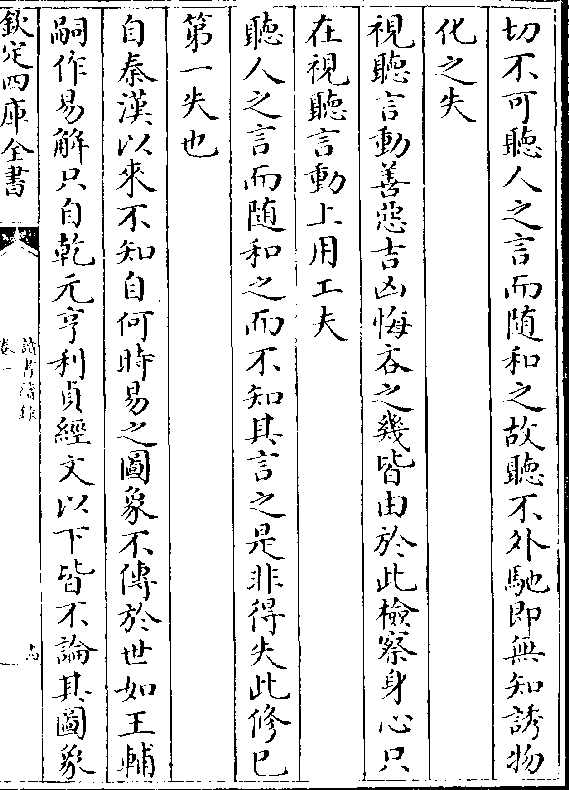 切不可聽人之言而随和之故聽不外馳即無知誘物
化之失
視聽言動善惡吉凶悔吝之幾皆由於此檢察身心只
在視聽言動上用工夫
聽人之言而随和之而不知其言之是非得失此修已
第一失也
自秦漢以來不知自何時易之圖象不傳於世如王輔
嗣作易解只自乾元亨利貞經文以下皆不論其圖象
欽定四庫全書
讀書續録
卷一